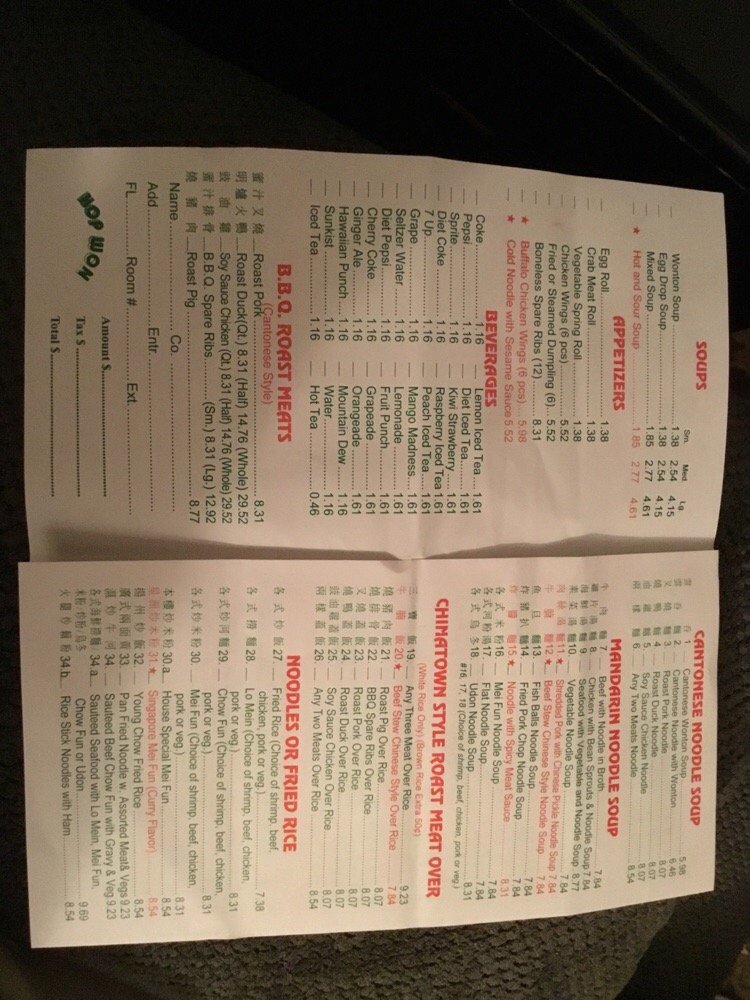 SOUPS
Sm. Med. Lg.
Wonton Soup 1.38 2.54 4.15
Egg Drop Soup 1.38 2.54 4.15
Mixed Soup 1.85 2.77 4.61
★ Hot and Sour Soup 1.85 2.77 4.61
APPETIZERS
Egg Roll 1.38
Crab Meat Roll 1.38
Vegetable Spring Roll 1.38
Chicken Wings (6 pcs) 5.52
Fried or Steamed Dumpling (6) 5.52
Boneless Spare Ribs (12) 8.31
★ Buffalo Chicken Wings (6 pcs) 5.98
★ Cold Noodle with Sesame Sauce 5.52
BEVERAGES
Coke 1.16 Lemon Iced Tea 1.61
Pepsi 1.16 Diet Iced Tea 1.61
Sprite 1.16 Kiwi Strawberry 1.61
Diet Coke 1.16 Raspberry Iced Tea 1.61
7 Up 1.16 Peach Iced Tea 1.61
Grape 1.16 Mango Madness 1.61
Seltzer Water 1.16 Lemonade 1.61
Diet Pepsi 1.16 Fruit Punch 1.61
Cherry Coke 1.16 Grapeade 1.61
Ginger Ale 1.16 Orangeade 1.61
Hawaiian Punch 1.16 Mountain Dew 1.16
Sunkist 1.16 Water 1.16
Iced Tea 1.16 Hot Tea 0.46
B.B.Q. ROAST MEATS
(Cantonese Style)
蜜汁叉燒 Roast Pork 8.31
明爐火鴨 Roast Duck (Qt.) 8.31 (Half) 14.76 (Whole) 29.52
豉油雞 Soy Sauce Chicken (Qt.) 8.31 (Half) 14.76 (Whole) 29.52
蜜汁排骨 B.B.Q. Spare Ribs (Sm.) 8.31 (Lg.) 12.92
燒豬肉 Roast Pig 8.77
Name Co.
Add Entr.
FL Room # Ext.
HOP WON
Amount $
Tax $
Total $
CANTONESE NOODLE SOUP
雲吞 1 Cantonese Wonton Soup 5.98
雲吞麵 2 Cantonese Noodle with Wonton 6.46
叉燒麵 3 Roast Pork Noodle 8.07
燒鴨麵 4 Roast Duck Noodle 8.07
5 Soy Sauce Chicken Noodle 8.07
兩樣麵 6 Any Two Meats Noodle 8.54
MANDARIN NOODLE SOUP
牛肉麵 7 Beef with Noodle in Broth 7.84
雞片湯麵 8 Chicken with Bean Sprouts & Noodle Soup 7.84
海鮮湯麵 9 Seafood with Vegetable and Noodle Soup 8.77
素菜湯麵 10 Vegetable Noodle Soup 7.84
11★ Shredded Pork with Chinese Pickle Noodle Soup 7.84
牛腩麵 12★ Beef Stew Chinese Style Noodle Soup 7.84
魚旦麵 13 Fish Balls Noodle Soup 7.84
炸豬扒麵 14 Fried Pork Chop Noodle Soup 7.84
炸醬麵 15★ Noodle with Spicy Meat Sauce 8.31
各式米粉 16 Mei Fun Noodle Soup 7.84
各式河粉湯 17 Flat Noodle Soup 7.84
各式烏冬 18 Udon Noodle Soup 8.31
#16, 17, 18 (Choice of shrimp, beef, chicken, pork or veg.)
CHINATOWN STYLE ROAST MEAT OVER
(White Rice Only) (Brown Rice Extra 50¢)
三寶飯 19 Any Three Meat Over Rice 9.23
牛腩飯 20★ Beef Stew Chinese Style Over Rice 7.84
燒豬肉飯 21 Roast Pig Over Rice 8.07
燒排骨飯 22 BBQ Spare Ribs Over Rice 8.07
叉燒蓋飯 23 Roast Pork Over Rice 8.07
燒鴨蓋飯 24 Roast Duck Over Rice 8.07
豉油雞蓋飯 25 Soy Sauce Chicken Over Rice 8.07
兩樣蓋飯 26 Any Two Meats Over Rice 8.54
NOODLES OR FRIED RICE
各式炒飯 27 Fried Rice (Choice of shrimp, beef,
chicken, pork or veg.) 7.38
各式撈麵 28 Lo Mein (Choice of shrimp, beef, chicken,
pork or veg.) 8.31
各式炒河麵 29 Chow Fun (Choice of shrimp, beef, chicken,
pork or veg.) 8.31
各式炒米粉 30 Mei Fun (Choice of shrimp, beef, chicken,
pork or veg.) 8.31
本樓炒米粉 30 a House Special Mei Fun 8.54
星洲炒米粉 31★ Singapore Mei Fun (Curry Flavor) 8.54
楊州炒飯 32 Young Chow Fried Rice 8.54
廣式兩面黃 33 Pan Fried Noodle w. Assorted Meat & Vegs 9.23
濕炒牛河 34 Sauteed Beef Chow Fun with Gravy & Veg 9.23
34 a Sauteed Seafood with Lo Mein, Mei Fun,
Chow Fun or Udon 9.69
火腿炒瀨粉 34 b Rice Stick Noodles with Ham 8.54